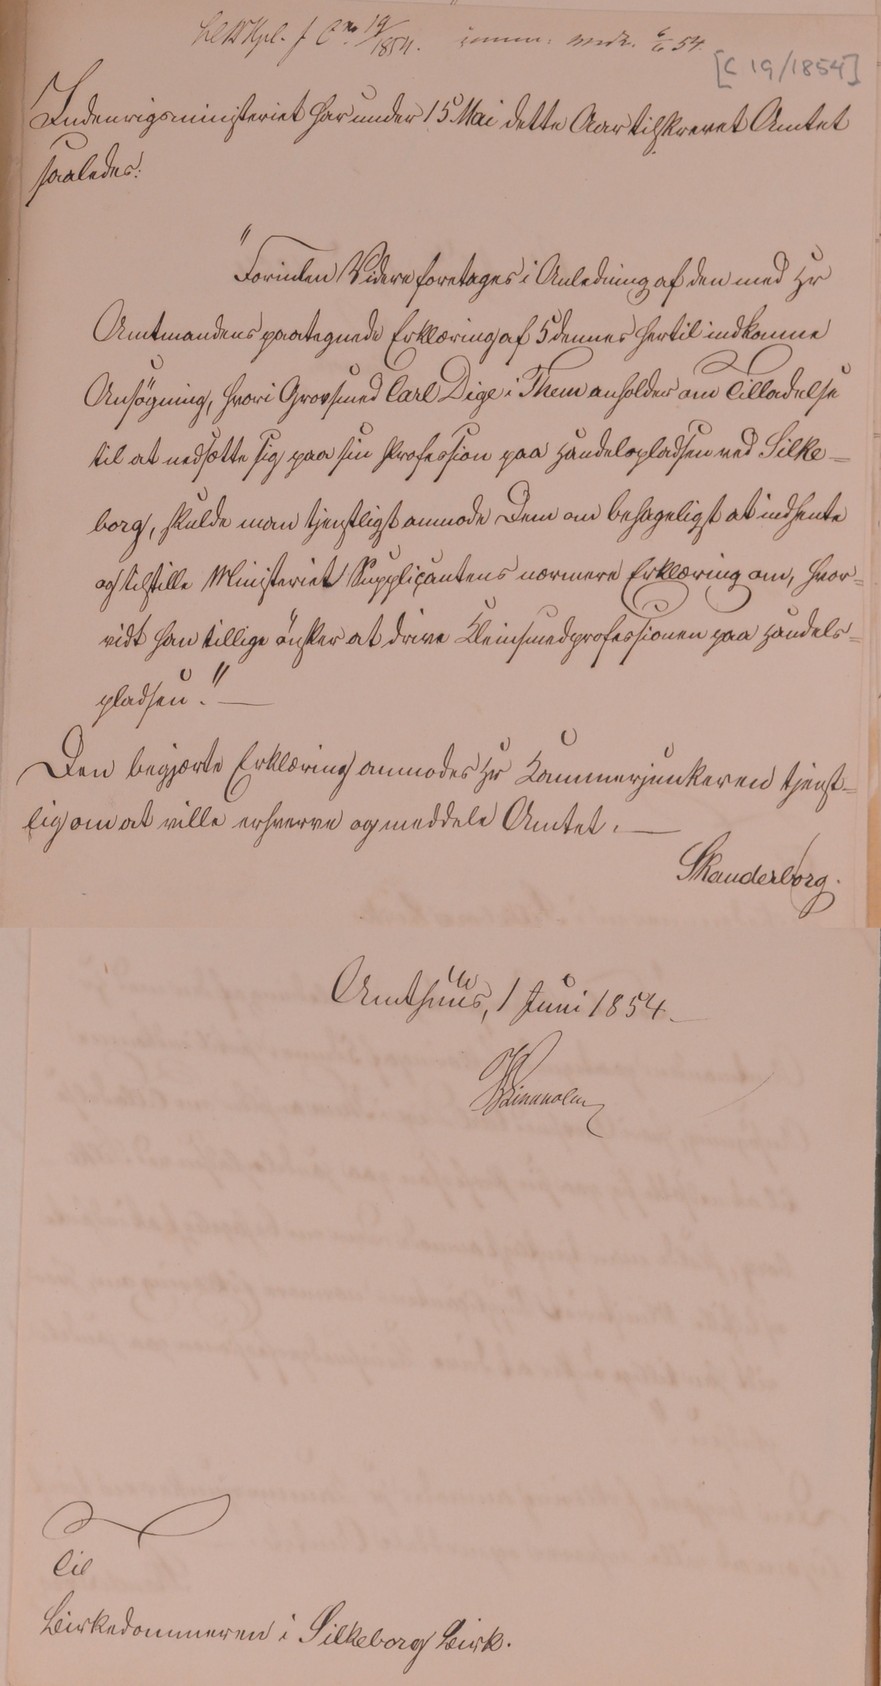 C no 19/1854. 6/6 54.
[C 19/1854]
Indenrigsministeriet har under 15 Mai dette Aar tilskrevet Amtet
saaledes:
"Forinden Videre foretages i Anledning af den med Hr
Amtmandens paategnede Erklæring af 5 dennes hertil indkomne
Ansøgning, hvori Grovsmed Carl Dige i Them anholder om Tilladelse
til at nedsætte sig paa sin Profession paa Handelspladsen ved Silke-
borg, skulde man tjenstligst anmode Dem om behageligst at indhente
og tilstille Ministeriet Supplicantens nærmere Erklæring om, hvor-
vidt han tillige ønsker at drive Kleinsmedprofessionen paa Handels-
pladsen." —
Den begjærte Erklæring anmodes Hr Kammerjunkeren tjenst-
lig om at ville erhverve og meddele Amtet. —
Skanderborg
Amthuus, 1 Juni 1854.
Til
Birkedommeren i Silkeborg Birk.